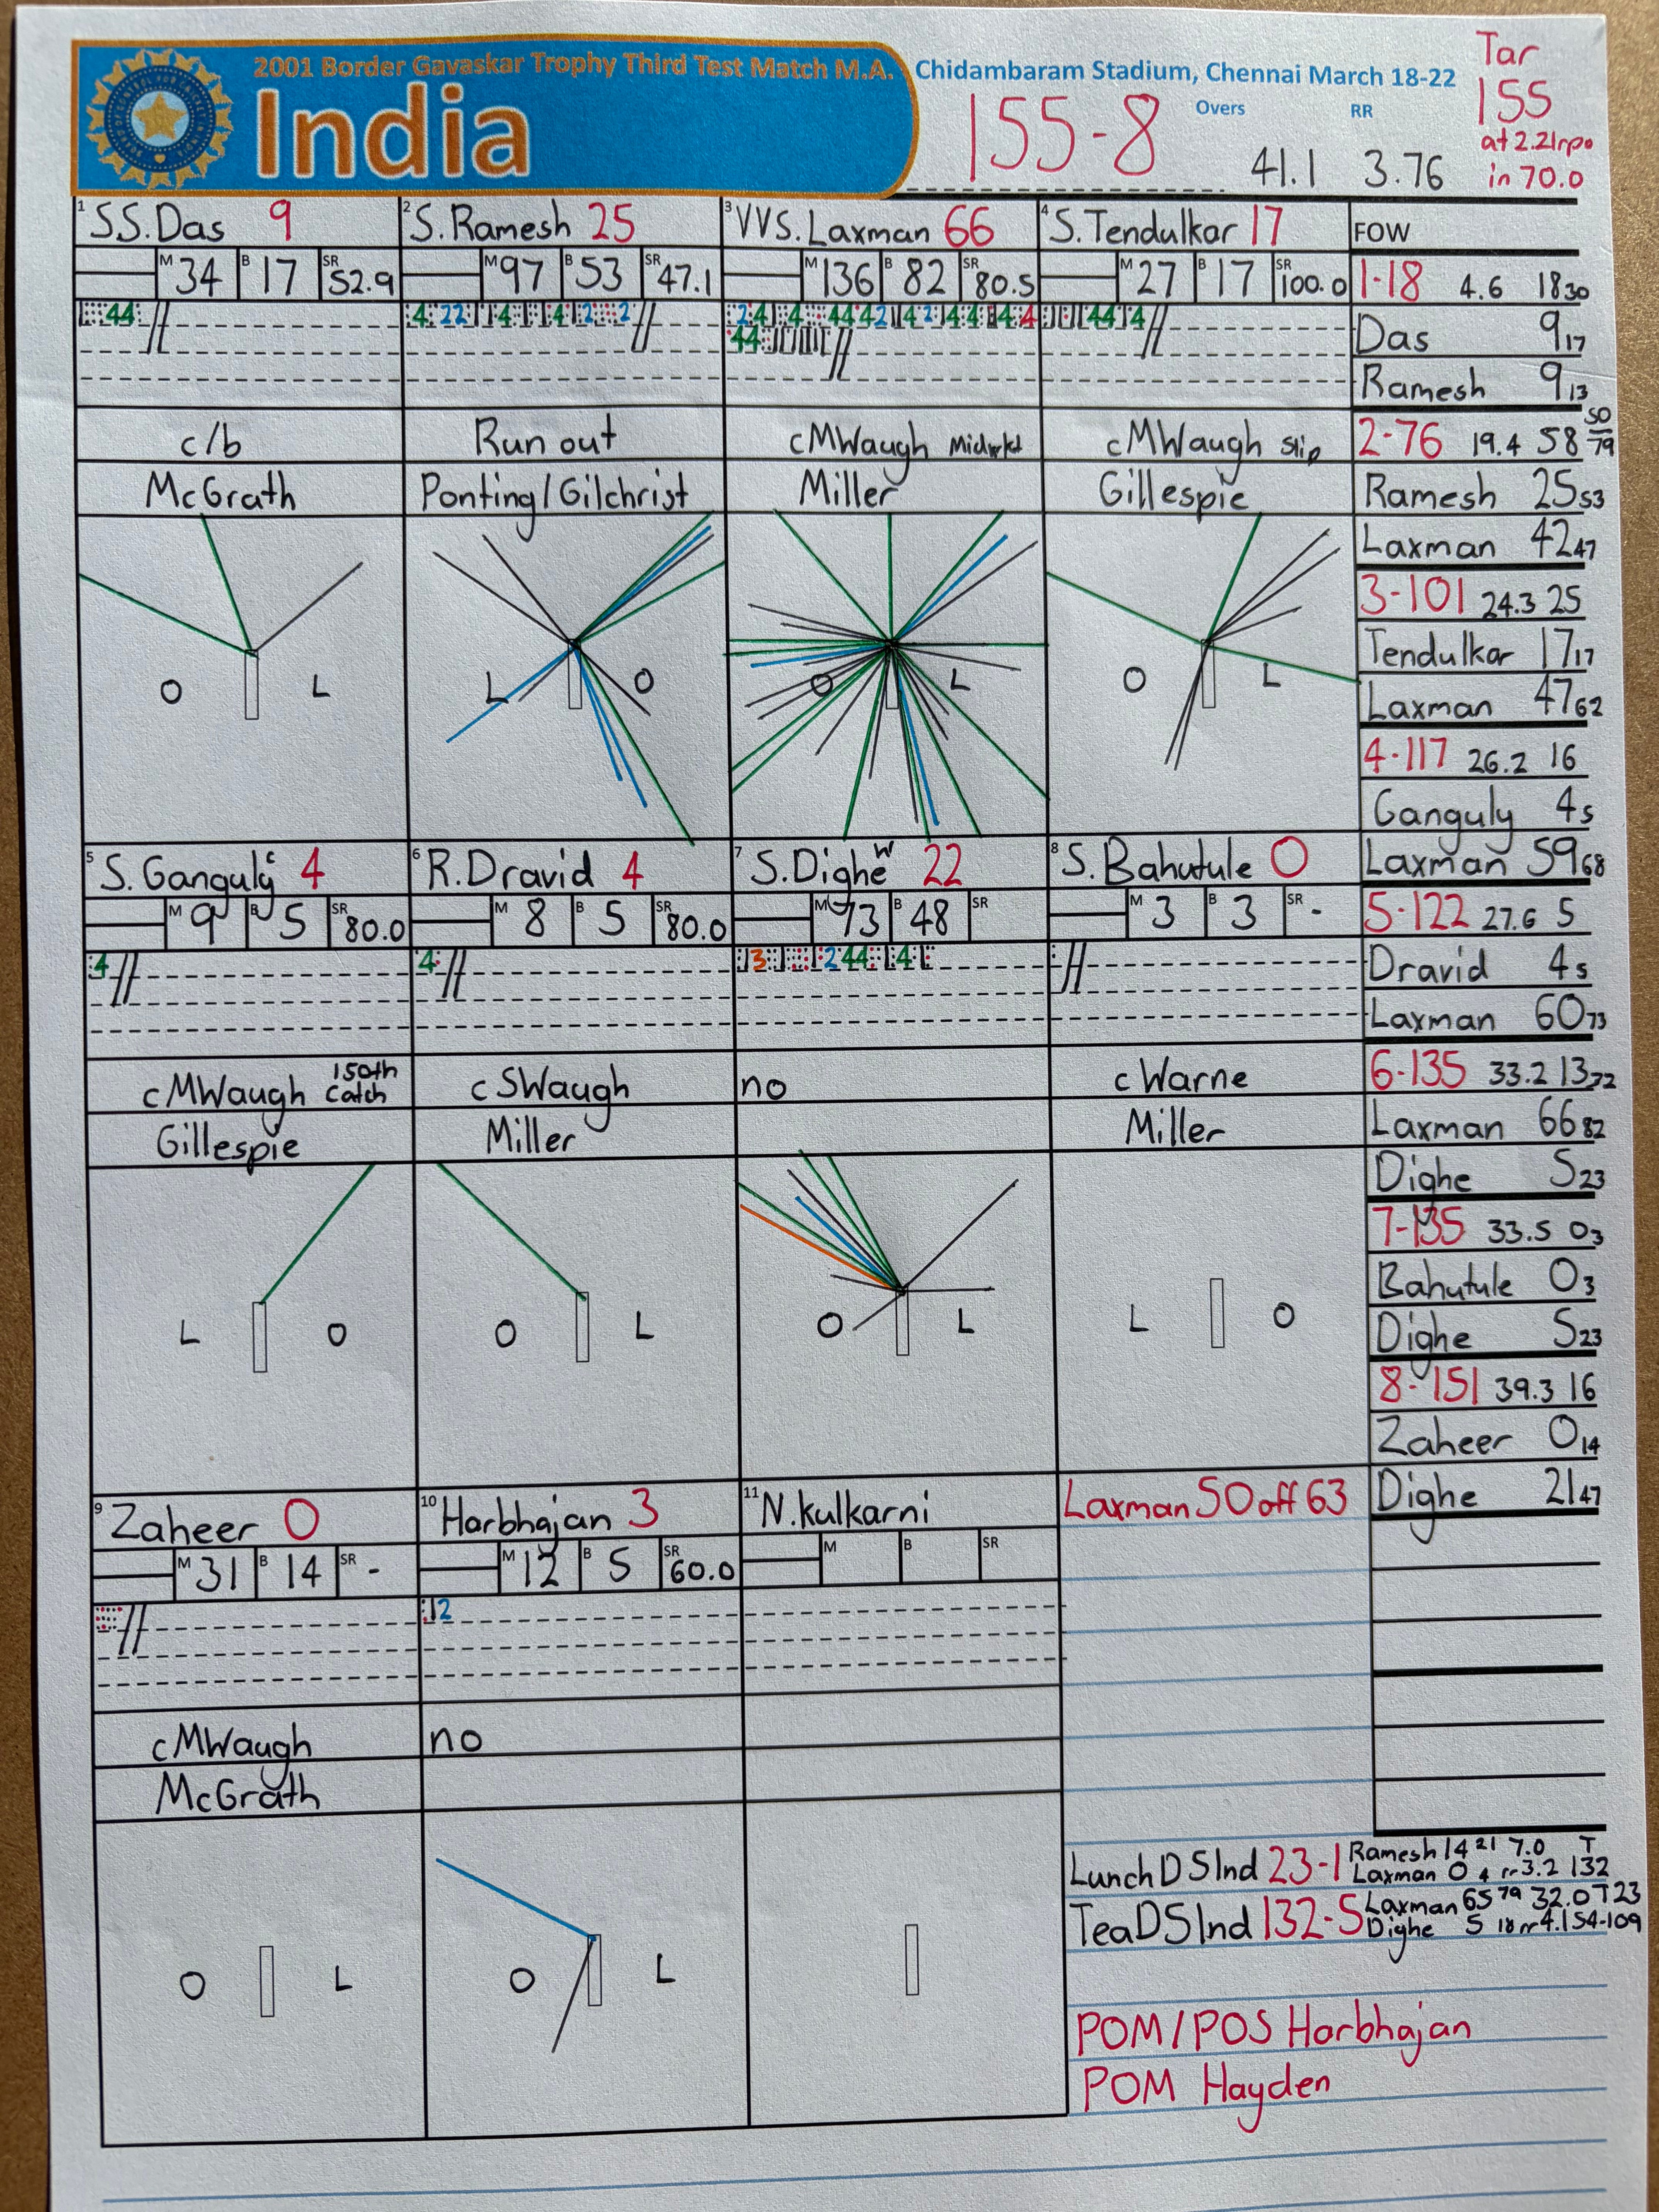 2001 Border Gavaskar Trophy Third Test Match M.A. Chidambaram Stadium, Chennai March 18-22
India
155-8
Overs
41.1
RR
3.76
Tar
155
at 2.21rpo
in 70.0
1 SS.Das 9
M 34 B 17 SR 52.9
44
c/b
McGrath
O L
2 S.Ramesh 25
M 97 B 53 SR 47.1
Run out
Ponting/Gilchrist
L O
3 VVS.Laxman 66
M 136 B 82 SR 80.5
cMWaugh Midwkt
Miller
O L
4 S.Tendulkar 17
M 27 B 17 SR 100.0
cMWaugh Slip
Gillespie
O L
5 S.Ganguly c 4
M 9 B 5 SR 80.0
4
cMWaugh 150th Catch
Gillespie
L O
6 R.Dravid 4
M 8 B 5 SR 80.0
4
cSWaugh
Miller
O L
7 S.Dighe W 22
M 73 B 48 SR
no
O L
8 S.Bahutule 0
M 3 B 3 SR -
cWarne
Miller
L O
9 Zaheer 0
M 31 B 14 SR -
cMWaugh
McGrath
O L
10 Harbhajan 3
M 12 B 5 SR 60.0
12
no
O L
11 N.Kulkarni
M B SR
FOW
1-18 4.6 18 30
Das 9 17
Ramesh 9 13
2-76 19.4 58 50/79
Ramesh 25 53
Laxman 42 47
3-101 24.3 25
Tendulkar 17 17
Laxman 47 62
4-117 26.2 16
Ganguly 4 5
Laxman 59 68
5-122 27.6 5
Dravid 4 5
Laxman 60 73
6-135 33.2 13 72
Laxman 66 82
Dighe 5 23
7-135 33.5 0 3
Bahutule 0 3
Dighe 5 23
8-151 39.3 16
Zaheer 0 14
Dighe 21 47
Laxman 50 off 63
Lunch D5 Ind 23-1 Ramesh 14 21 7.0 T
Laxman 0 4 rr3.2 132
Tea D5 Ind 132-5 Laxman 65 79 32.0 T23
Dighe 5 18 rr4.1 54-109
POM/POS Harbhajan
POM Hayden